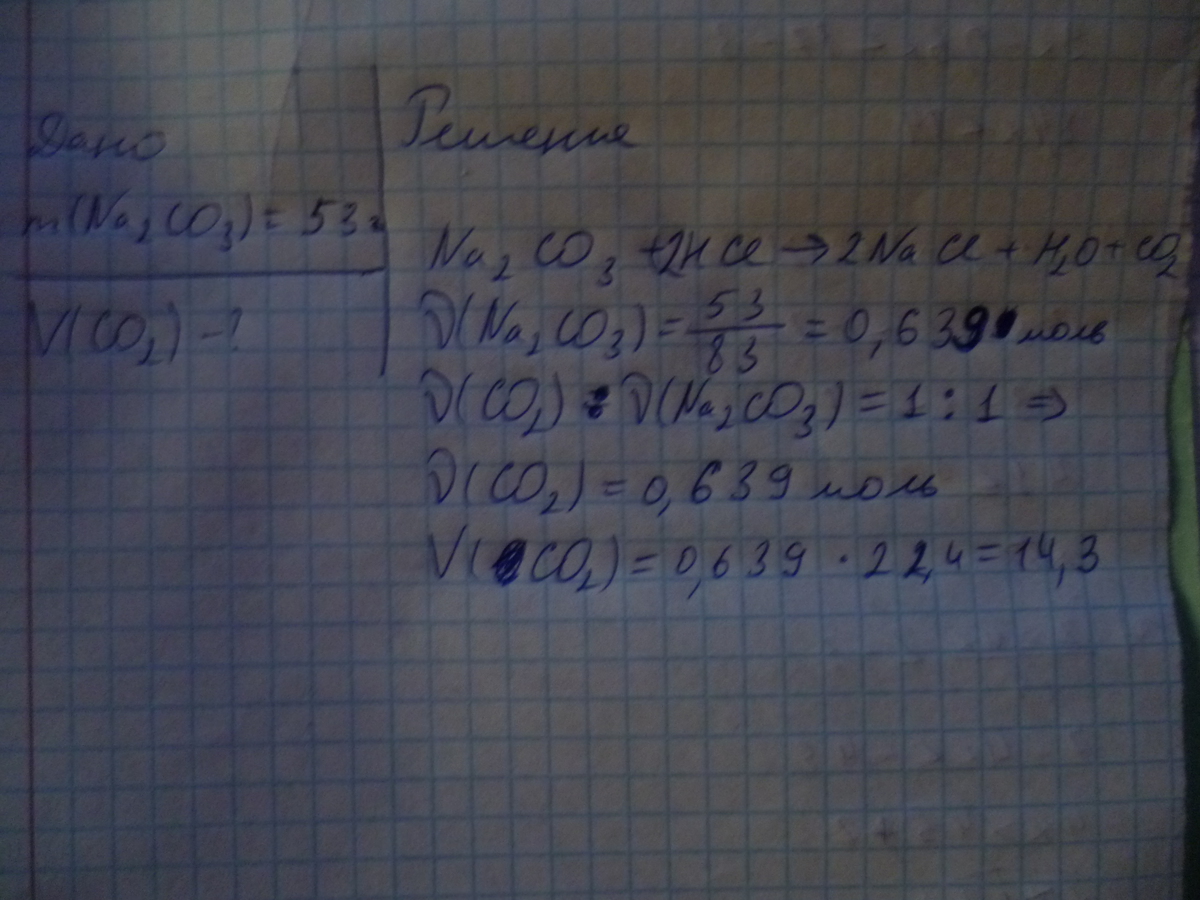 Дано
m(Na₂CO₃) = 53г
V(CO₂) - ?
Решение
Na₂CO₃ + 2HCl → 2NaCl + H₂O + CO₂
ν(Na₂CO₃) = 53/83 = 0,639 моль
ν(CO₂) : ν(Na₂CO₃) = 1 : 1 ⇒
ν(CO₂) = 0,639 моль
V(CO₂) = 0,639 · 22,4 = 14,3